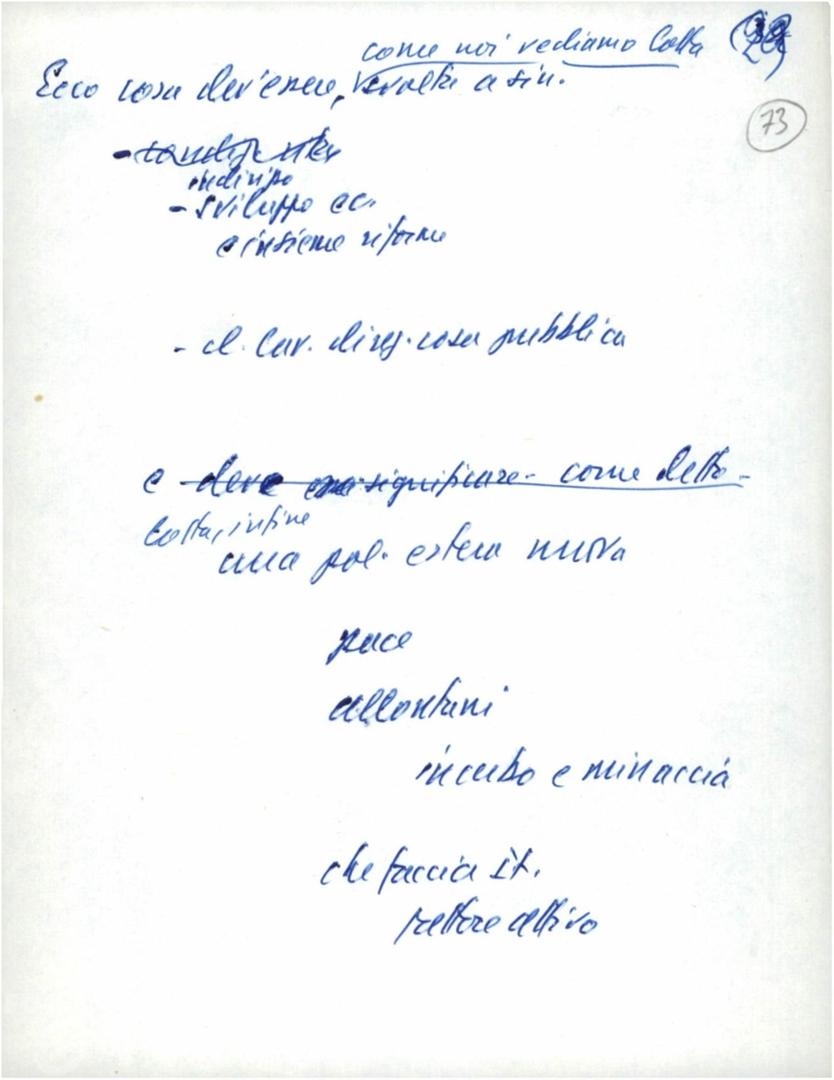 come noi vediamo lotta
Ecco cosa dev'essere, svolta a sin.
73
indirizzo
- sviluppo ec.
e insieme riforme
- cl. lav. direz. cosa pubblica
e deve significare - come detto -
Lotta, infine
una pol. estera nuova
pace
allontani
incubo e minaccia
che faccia It.
fattore attivo